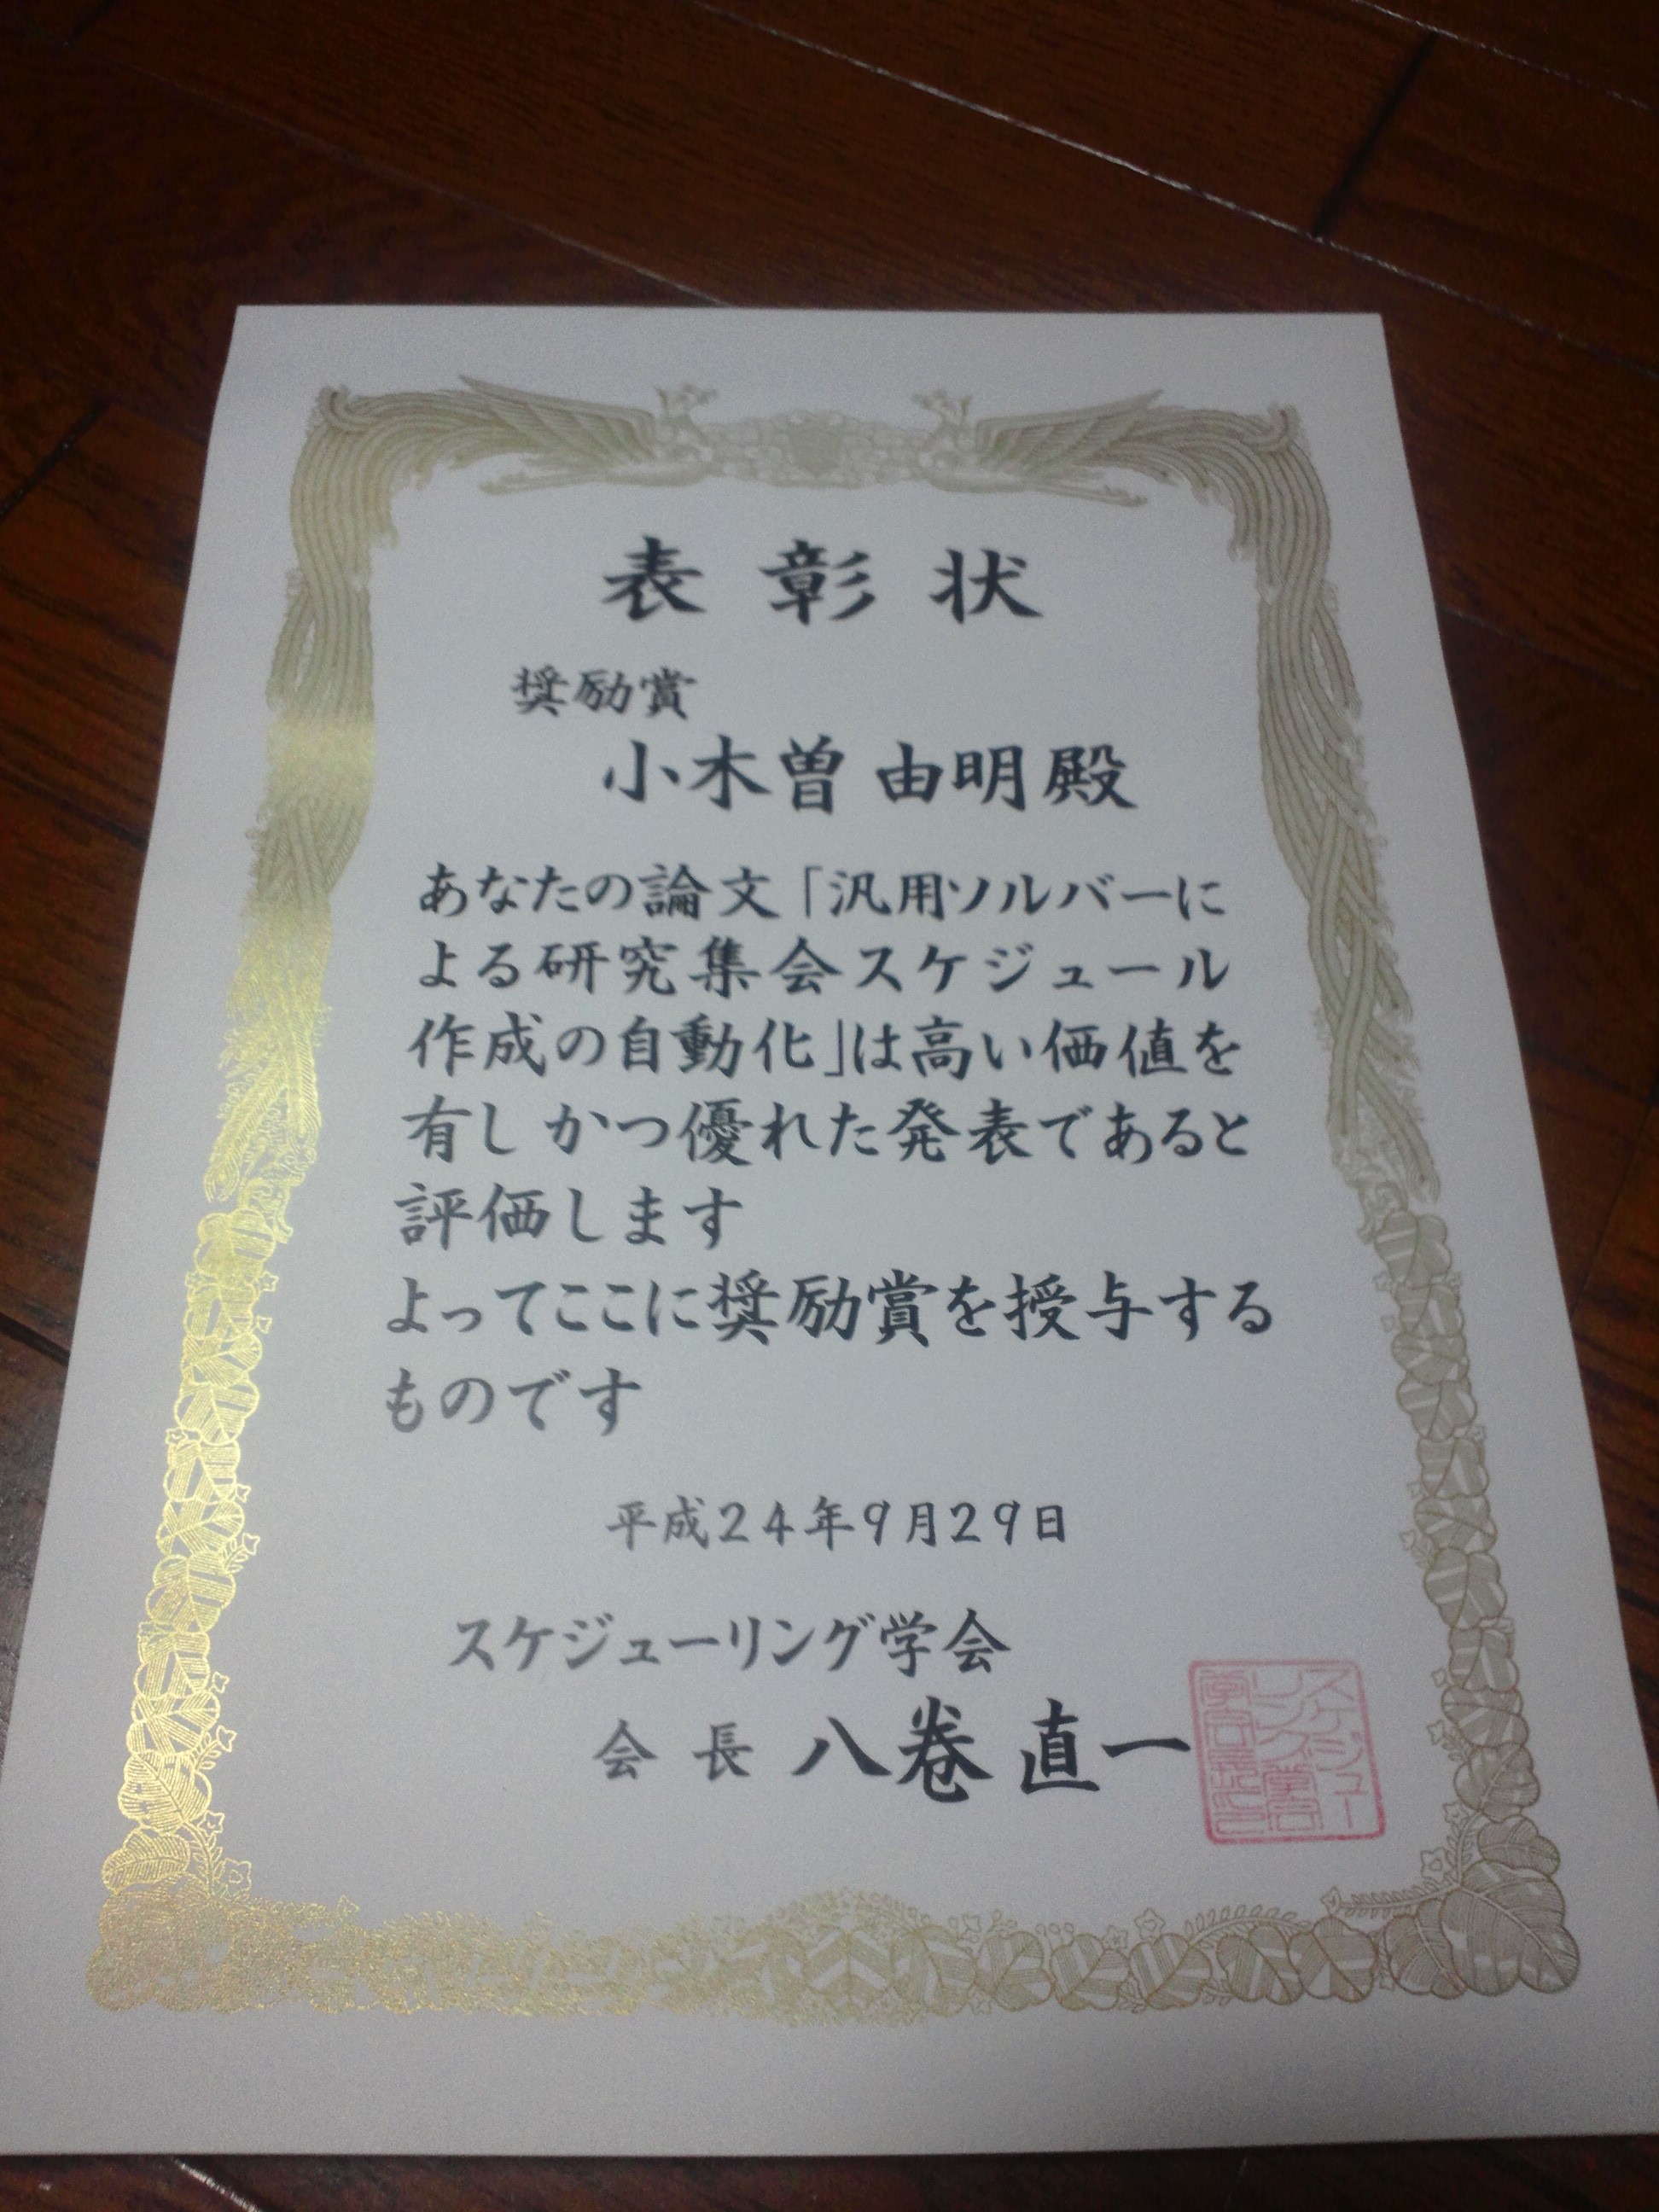 表彰状
奨励賞
小木曽 由明殿
あなたの論文「汎用ソルバーに
よる研究集会スケジュール
作成の自動化」は高い価値を
有し かつ優れた発表であると
評価します
よってここに奨励賞を授与する
ものです
平成24年9月29日
スケジューリング学会
会長 八巻 直一
スケジュー
リング学会
学会長之印